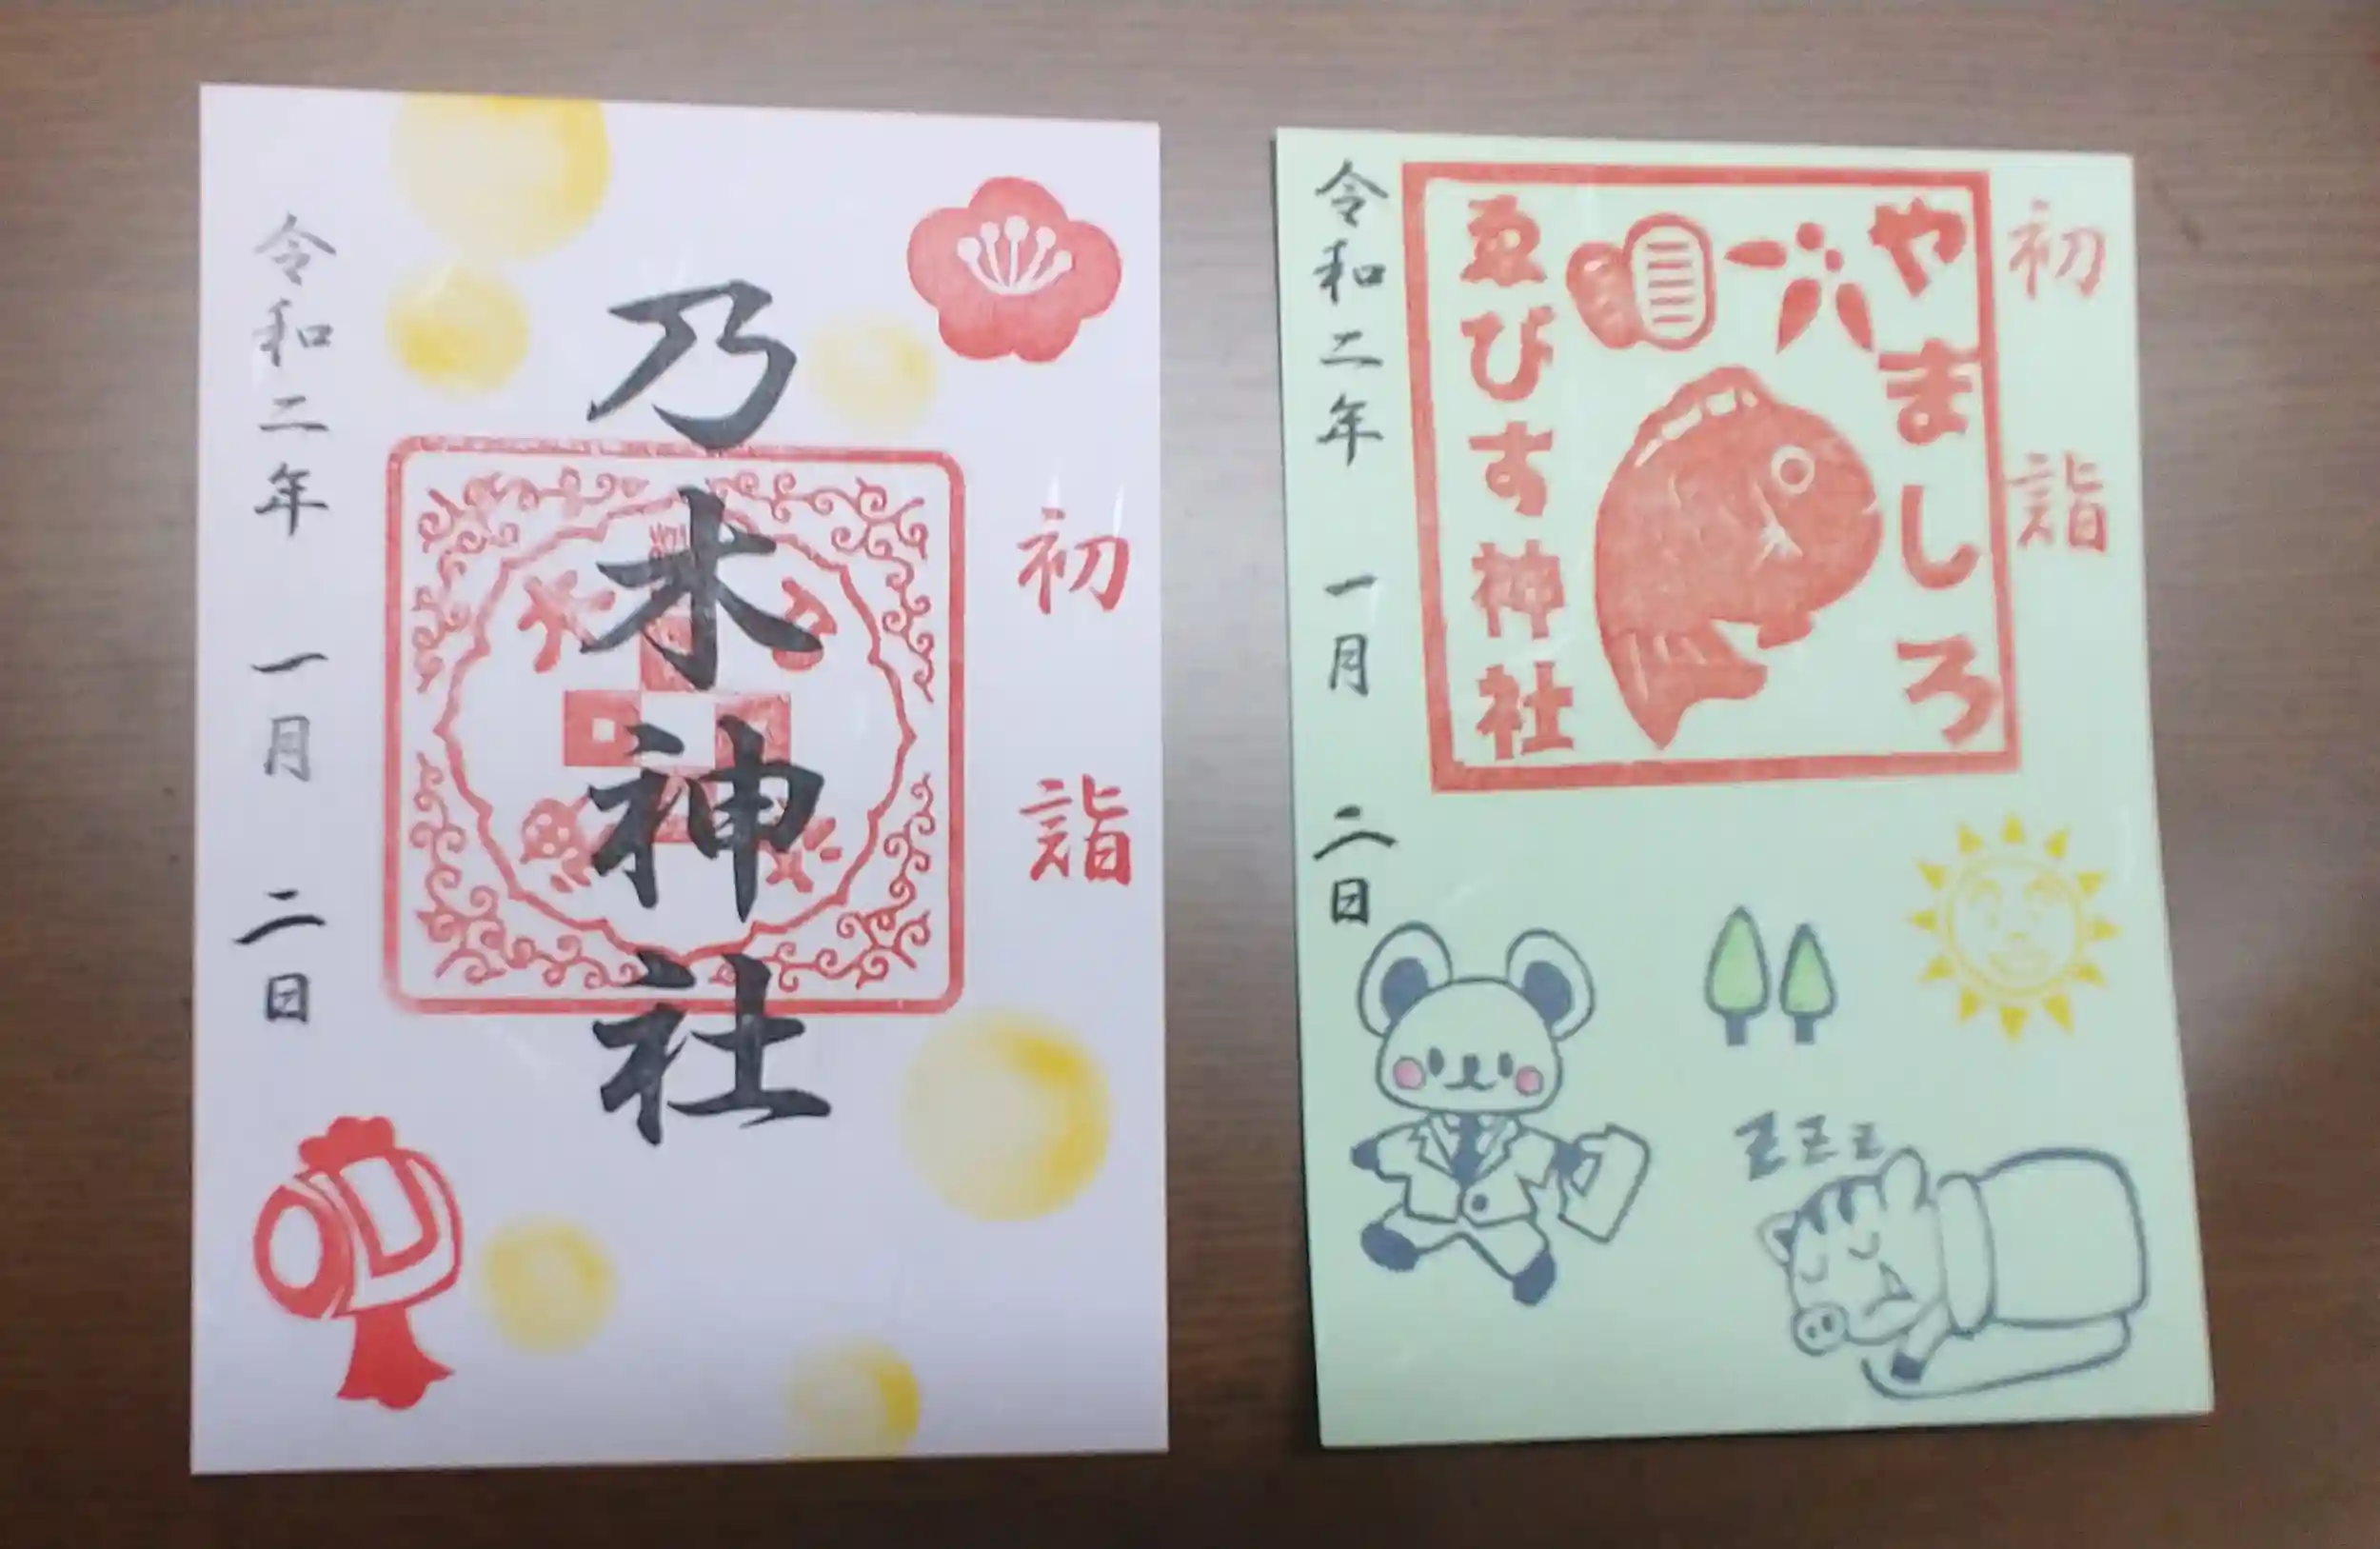 初詣
乃木神社
令和二年 一月 二日
初詣
やましろ
ゑびす神社
令和二年 一月 二日
ZZZ